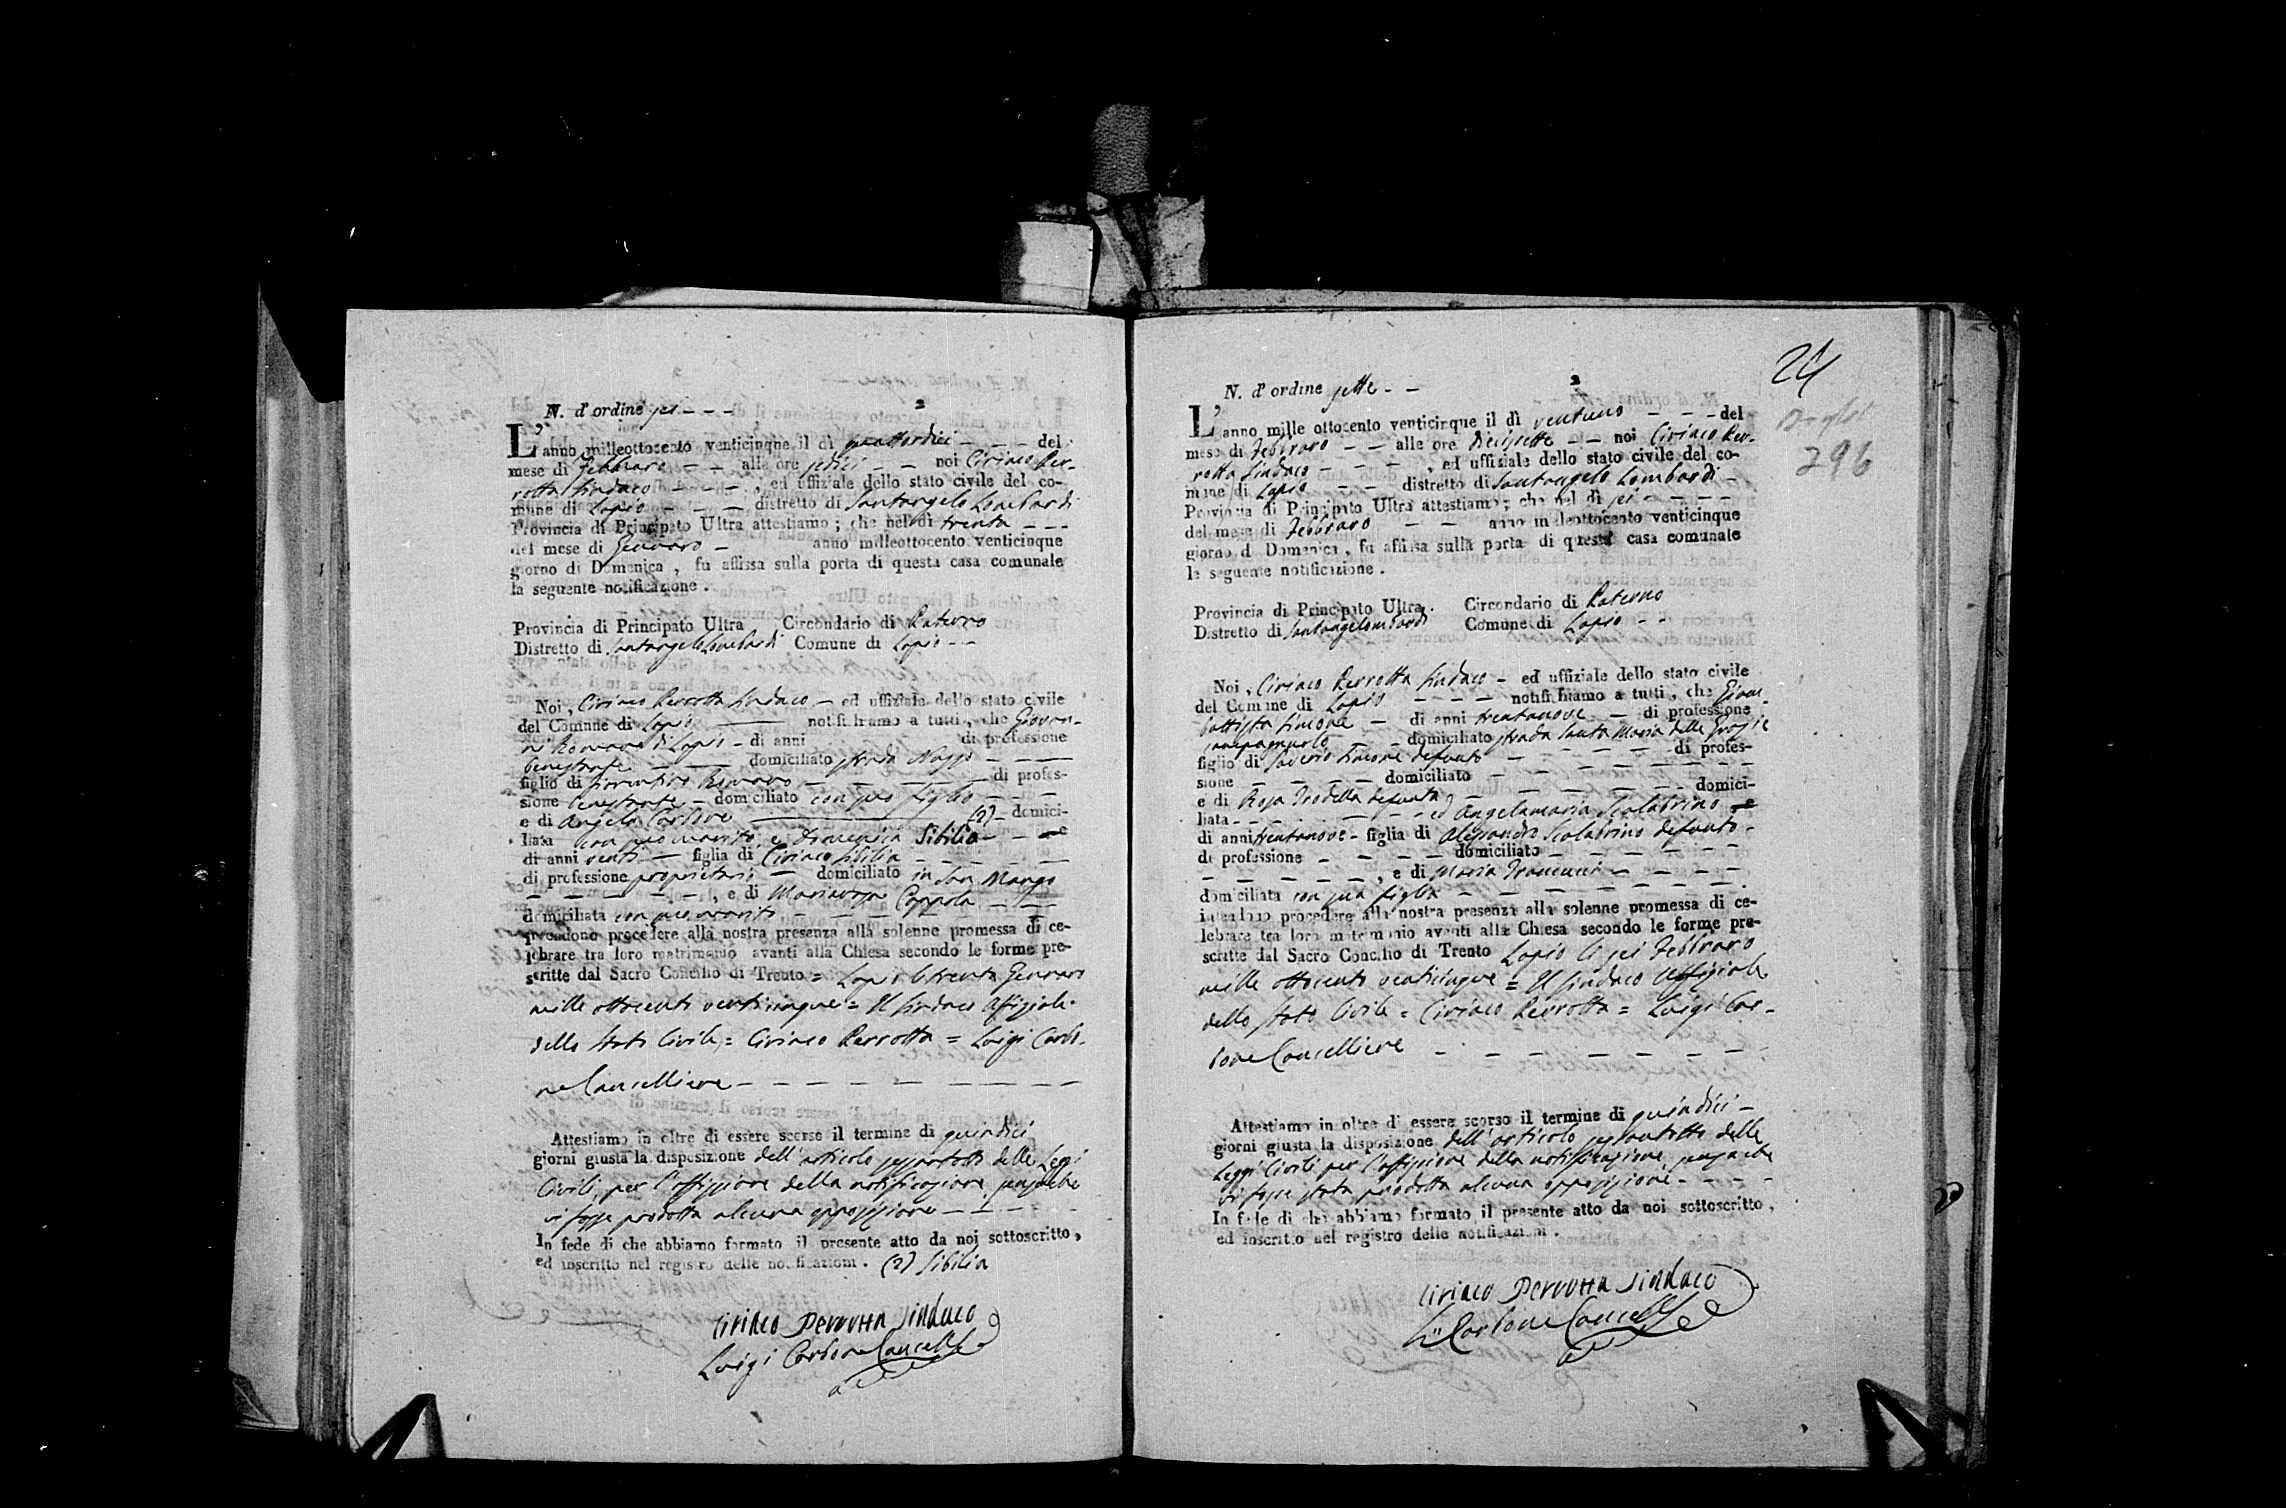 N. d'ordine sei - - -
2
L'anno milleottocento venticinque il dì quattordici - - - del
mese di Febbraro - - alle ore sedici - - noi Ciriaco Per-
rotta Sindaco - - - , ed uffiziale dello stato civile del co-
mune di Lapio - - - distretto di Santangelo Lombardi
Provincia di Principato Ultra attestiamo ; che nel dì trenta - - -
del mese di Gennaro - anno milleottocento venticinque
giorno di Domenica , fu affissa sulla porta di questa casa comunale
la seguente notificazione .
Provincia di Principato Ultra Circondario di Paterno
Distretto di Santangelo Lombardi Comune di Lapio - -
Noi , Ciriaco Perrotta Sindaco - ed uffiziale dello stato civile
del Comune di Lapio - notifichiamo a tutti , che Giovan-
ni Romano di Lapio - di anni di professione
benestante - - domiciliato strada - - -
figlio di Romano - - - - di profes-
sione benestante - domiciliato con suo figlio - - -
e di Angela Carbone (2) - domici-
liata con suo marito, e Domenica Sibilia - - - e
di anni venti - figlia di Ciriaco Sibilia - - - - -
di professione proprietario - domiciliato in San Mango
- - - - - - , e di Coppola - - -
domiciliata con suo marito - - - - - - -
intendono procedere alla nostra presenza alla solenne promessa di ce-
lebrare tra loro matrimonio avanti alla Chiesa secondo le forme pre-
scritte dal Sacro Concilio di Trento = Lapio li trenta Gennaro
mille ottocento venticinque = Il Sindaco Uffiziale
dello Stato Civile = Ciriaco Perrotta = Luigi Carbo-
ne Cancelliere - - - - - - - - -
Attestiamo in oltre di essere scorso il termine di quindici
giorni giusta la disposizione dell'articolo sessantotto delle Leggi
Civili, per l'affissione della notificazione, senza che
vi fosse prodotta alcuna opposizione - - - -
In fede di che abbiamo formato il presente atto da noi sottoscritto ,
ed inscritto nel registro delle notificazioni . (2) Sibilia
Ciriaco Perrotta Sindaco
Luigi Carbone Cancell
24
296
N. d'ordine sette - -
2
L'anno mille ottocento venticinque il dì ventuno - - - del
mese di Febbraro - - alle ore Diecisette - - noi Ciriaco Per-
rotta Sindaco - - - , ed uffiziale dello stato civile del co-
mune di Lapio - - distretto di Santangelo Lombardi -
Provincia di Principato Ultra attestiamo ; che nel dì sei - - - -
del mese di Febbraro - - anno milleottocento venticinque
giorno di Domenica , fu affissa sulla porta di questa casa comunale
la seguente notificazione .
Provincia di Principato Ultra . Circondario di Paterno
Distretto di Santangelombardi Comune di Lapio - -
Noi , Ciriaco Perrotta Sindaco - ed uffiziale dello stato civile
del Comune di Lapio - - - - notifichiamo a tutti , che Giam-
battista Simone - di anni trentanove - di professione
campagnuolo - - domiciliato strada Santa Maria delle Grazie
figlio di Saverio Simone defunto - - - - - di profes-
sione - - - - domiciliato - - - - - -
e di Rosa defunta - - - - - domici-
liata - - - - - - ed Angelamaria Scolabrino - e
di anni trentanove - figlia di Alesandro Scolabrino defunto -
di professione - - - - domiciliato - - - - - -
- - - - - - , e di Maria - - - - -
domiciliata con sua figlia - - - - - - - -
intendono procedere alla nostra presenza alla solenne promessa di ce-
lebrare tra loro matrimonio avanti alla Chiesa secondo le forme pre-
scritte dal Sacro Concilio di Trento Lapio li sei Febbraro
mille ottocento venticinque = Il Sindaco Uffiziale
dello Stato Civile = Ciriaco Perrotta = Luigi Car-
bone Cancelliere - - - - - - - -
Attestiamo in oltre di essere scorso il termine di quindici -
giorni giusta la disposizione dell'articolo sessantotto delle
Leggi Civili per l'affissione della notificazione, senza che
vi fosse stata prodotta alcuna opposizione - - - -
In fede di che abbiamo formato il presente atto da noi sottoscritto ,
ed inscritto nel registro delle notificazioni .
Ciriaco Perrotta Sindaco
Lu Carbone Cancell